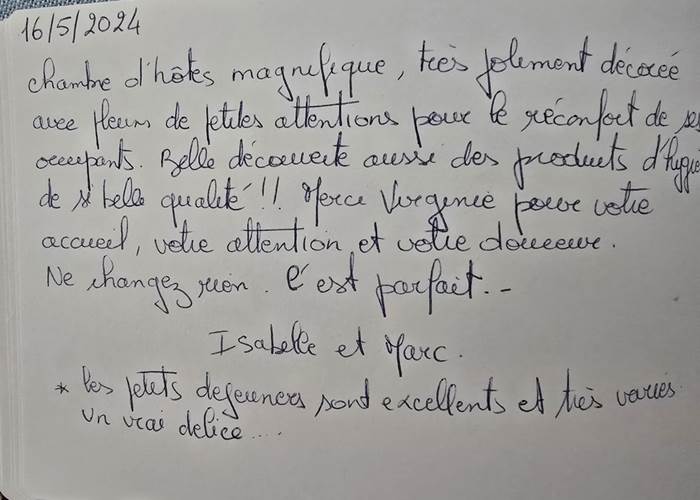 16/5/2024
chambre d'hôtes magnifique, très joliment décorée
avec pleins de petites attentions pour le réconfort de ses
occupants. Belle découverte aussi des produits d'hygiè
de belle qualité !! Merci Virginie pour votre
accueil, votre attention et votre douceur.
Ne changez rien. C'est parfait.-
Isabelle et Marc.
* les petits dejeuners sont excellents et très variés
un vrai délice....